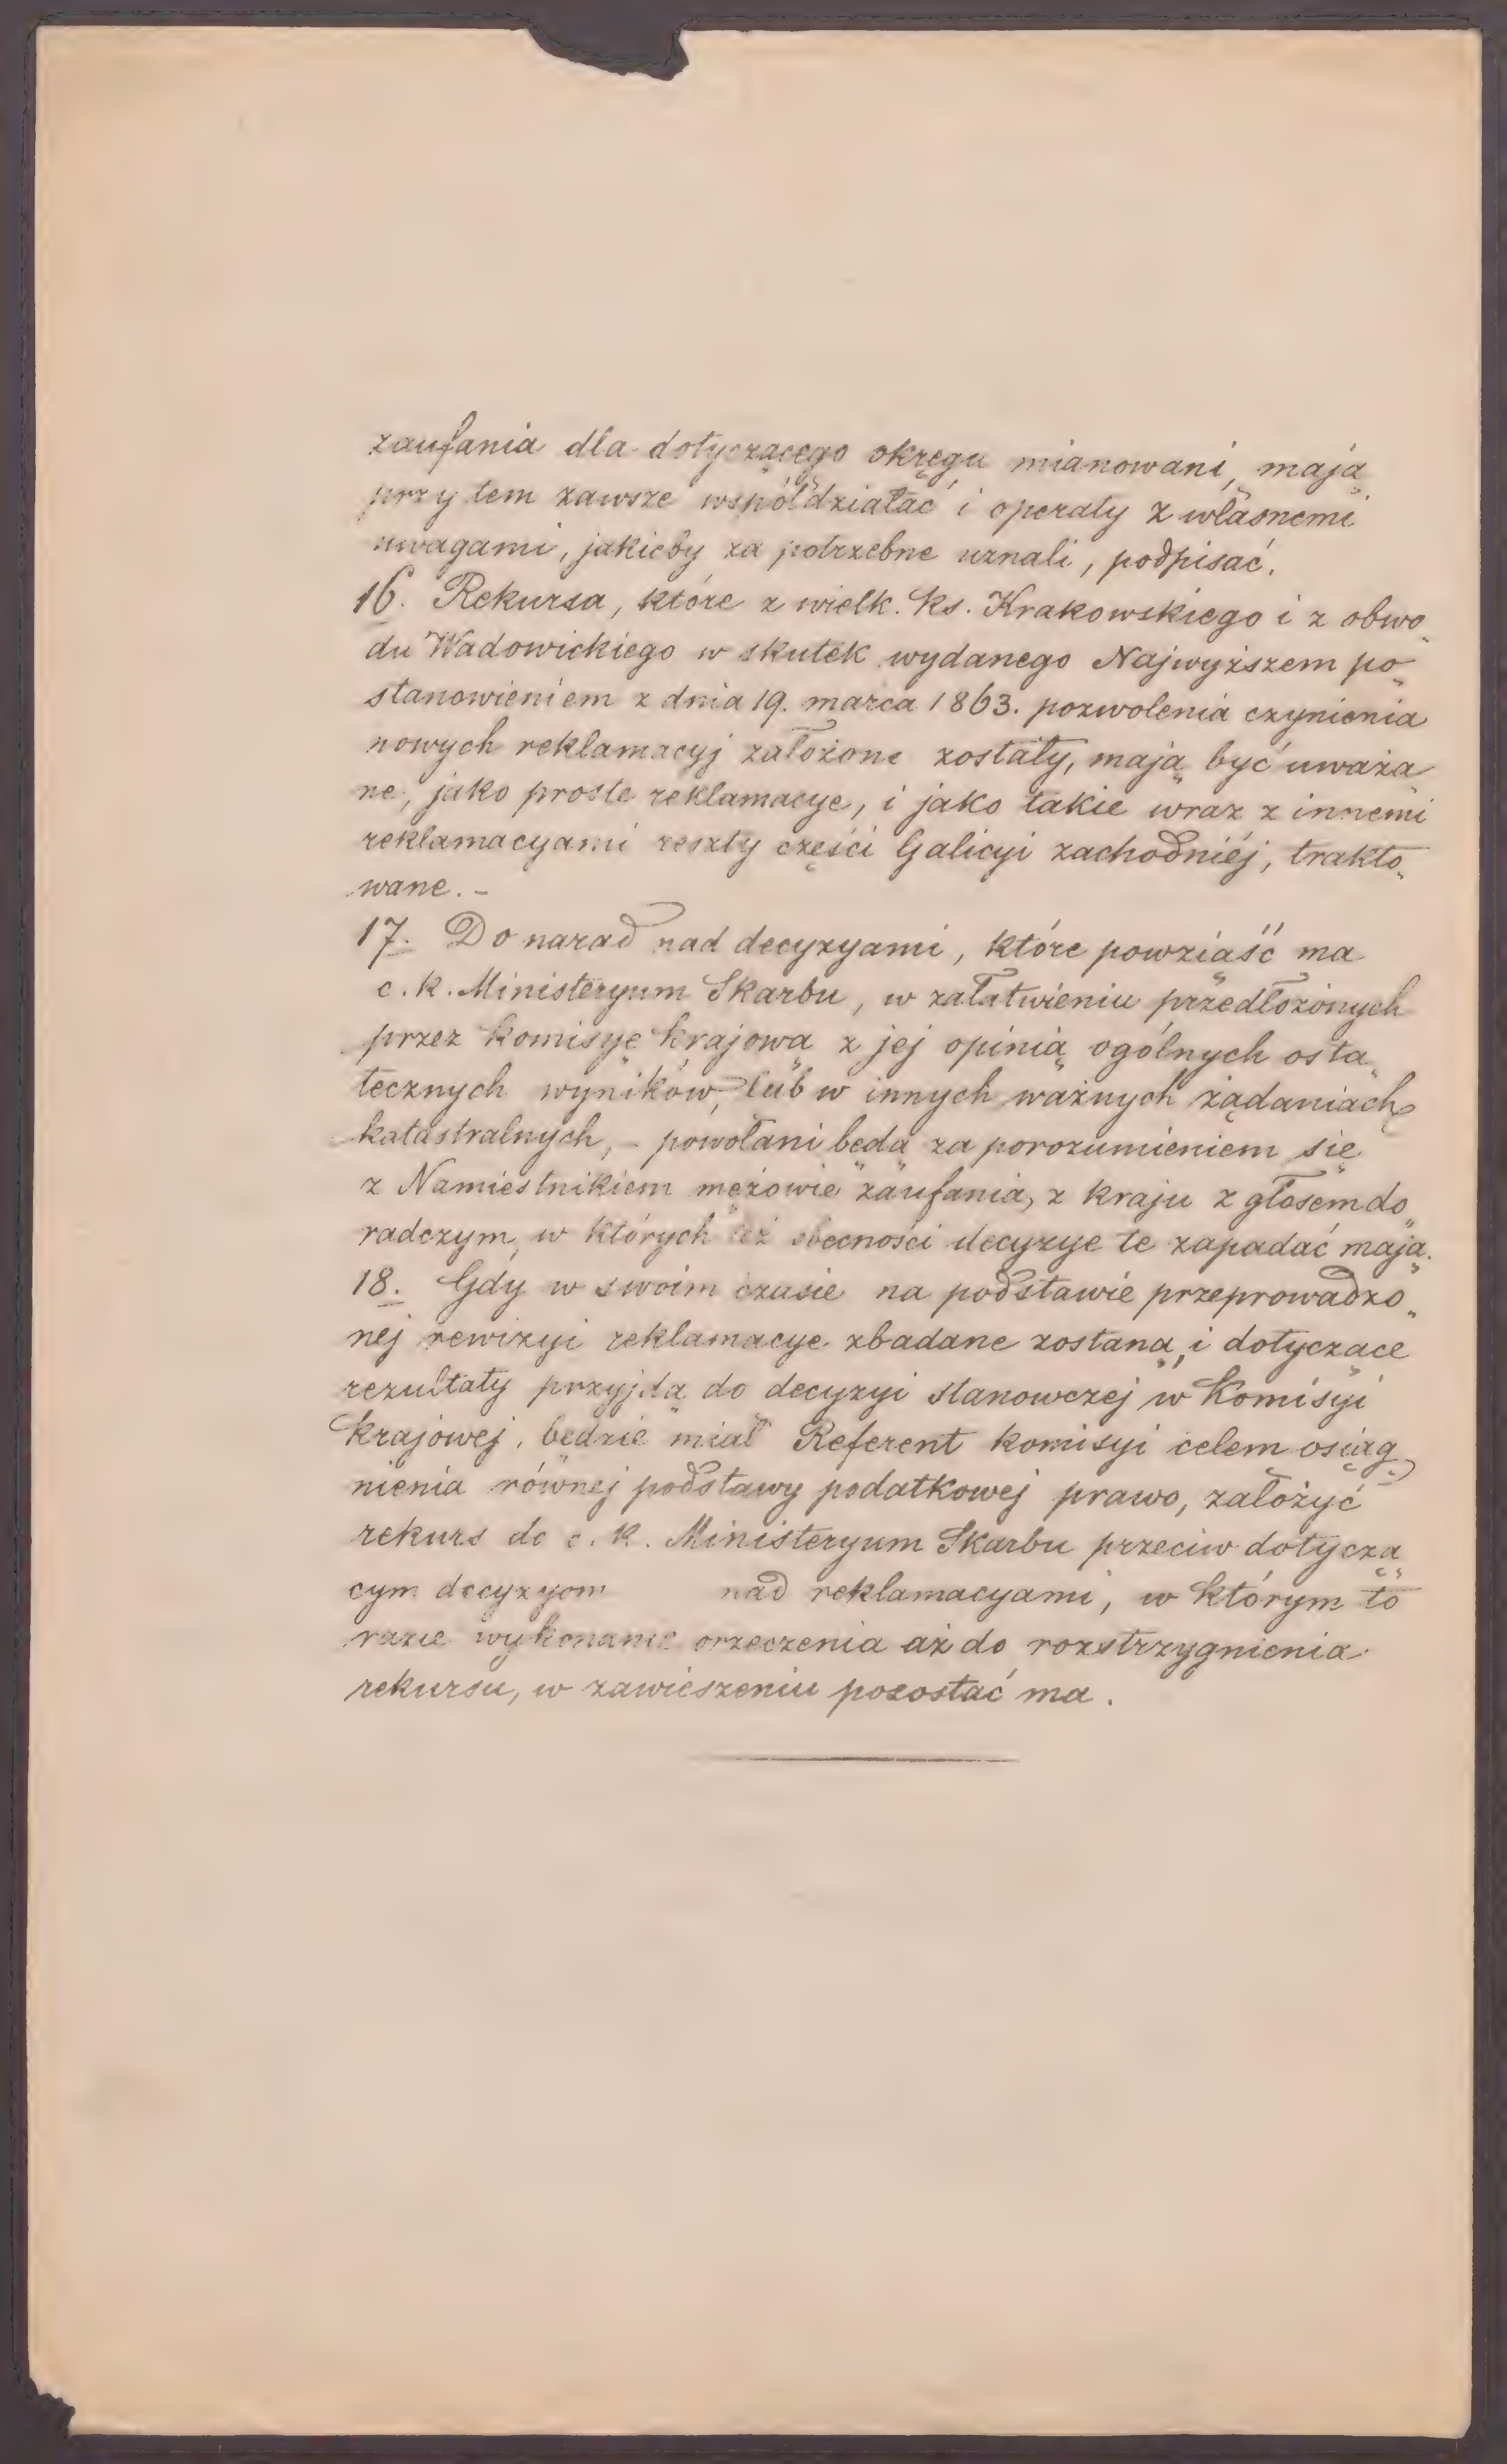 zaufania dla dotyczącego okręgu mianowani, mają
przy tem zawsze współdziałać i operaty z własnemi
uwagami, jakieby za potrzebne uznali, podpisać.
16. Rekursa, które z wielk. ks. Krakowskiego i z obwo„
du Wadowickiego w skutek wydanego Najwyższem po„
stanowieniem z dnia 19. marca 1863. pozwolenia czynienia
nowych reklamacyj założone zostały, mają być uważa„
ne, jako proste reklamacye, i jako takie wraz z innemi
reklamacyami reszty części Galicyi zachodniéj, trakto„
wane. –
17. Do narad nad decyzyami, które powziąść ma
c. k. Ministeryum Skarbu, w załatwieniu przedłożonych
przez Komisyę Krajową z jej opinią ogólnych osta„
tecznych wyników, lub w innych ważnych żądaniach
katastralnych, – powołani będą za porozumieniem się
z Namiestnikiem mężowie zaufania, z kraju z głosem do„
radczym, w których też obecności decyzye te zapadać mają.
18. Gdy w swoim czasie na podstawie przeprowadzo„
nej rewizyi reklamacye zbadane zostaną, i dotyczące
rezultaty przyjdą do decyzyi stanowczej w Komisyi
Krajowej, będzie miał Referent komisyi celem osiąg„
nienia równej podstawy podatkowej prawo, założyć
rekurs do c. k. Ministeryum Skarbu przeciw dotyczą„
cym decyzyom nad reklamacyami, w którym to
razie wykonanie orzeczenia aż do rozstrzygnienia
rekursu, w zawieszeniu pozostać ma.